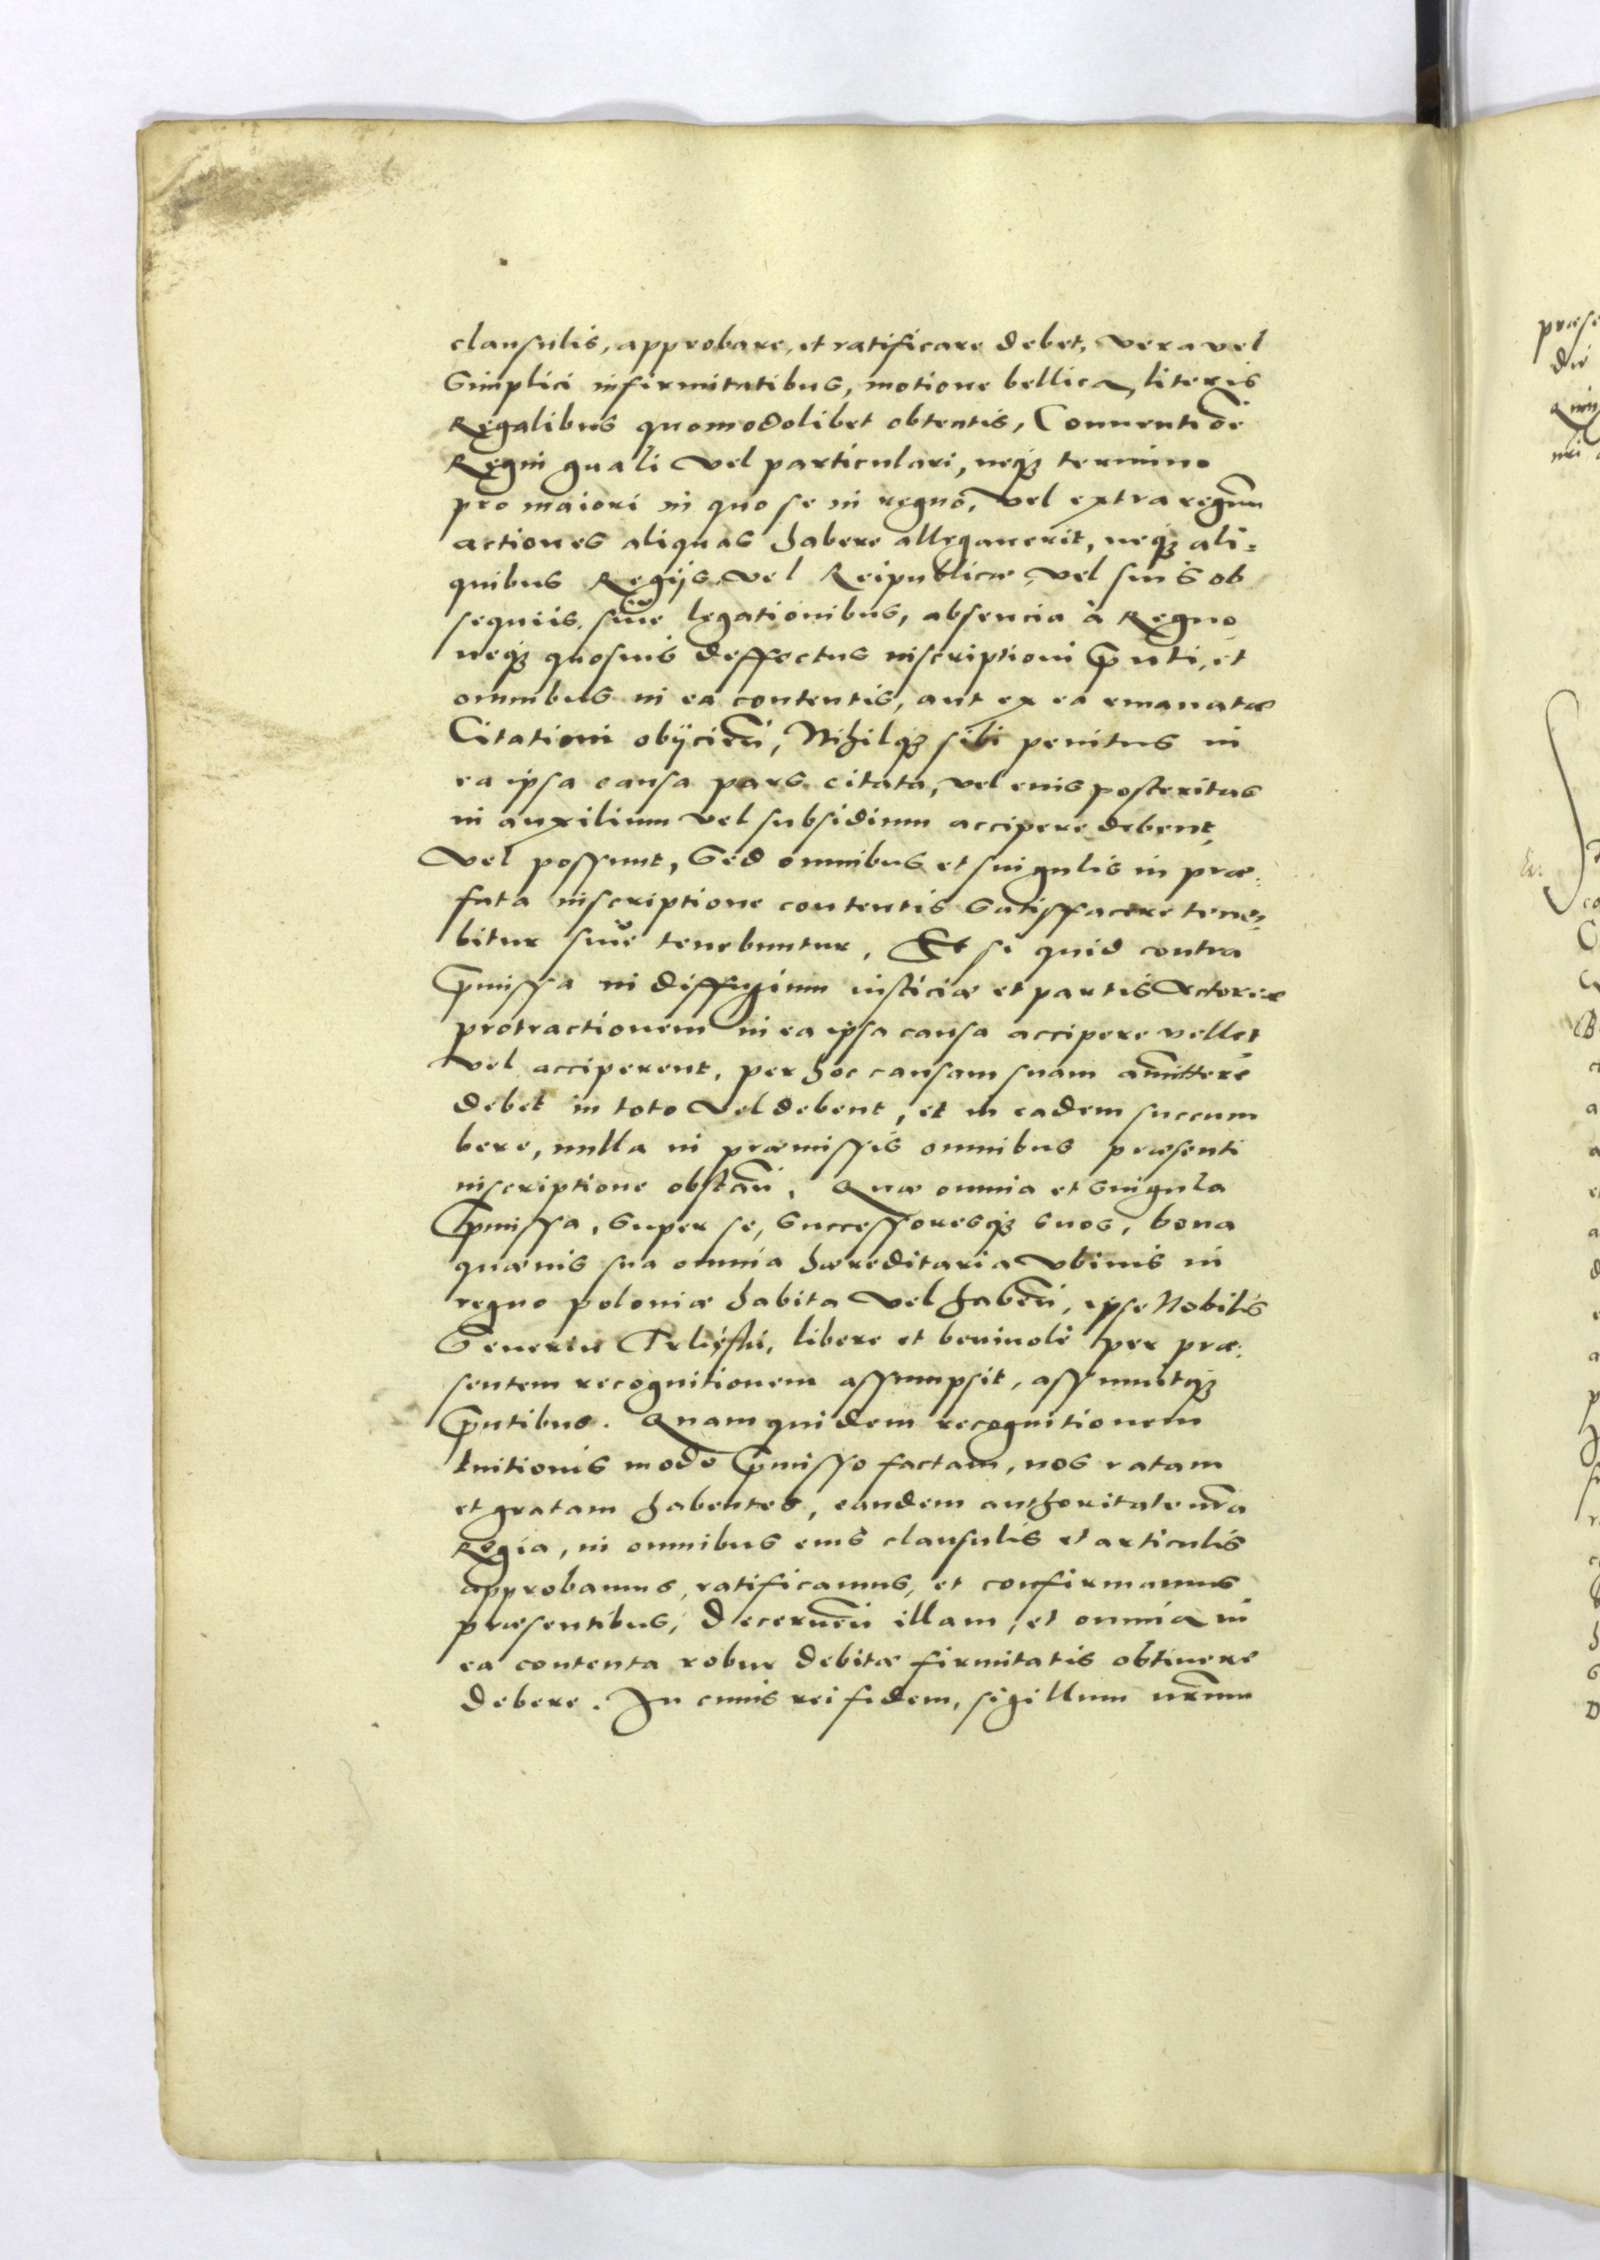 clausulis, approbare, et ratificare debet, vera vel
simplici infirmitatibus, motione bellica, literis
Regalibus quomodolibet obtentis, Conuentiõe
Regni gnãli vel particulari, neqꝫ termino
pro maiori in quo se in regno, vel extra regnũ
actiones aliquas habere allegauerit, neqꝫ ali=
quibus Regijs vel Reipublicæ, vel suis ob
sequiis, siue legationibus, absencia à Regno
neqꝫ quosuis deffectus inscriptioni p̃nti, et
omnibus in ea contentis, aut ex ea emanatæ
Citationi obijciẽn, Nihilqꝫ sibi penitus in
ea ipsa causa pars citata, vel eius posteritas
in auxilium vel subsidium accipere debent,
vel possunt, Sed omnibus et singulis in præ=
fata inscriptione contentis satisfacere tene=
bitur siue tenebuntur, Et si quid contra
p̃missa in diffugium iusticiæ et partis Actoreæ
protractionem in ea ipsa causa accipere vellet
vel acciperent, per hoc causam suam amittere
debet in toto vel debent, et in eadem succum
bere, nulla in præmissis omnibus præsenti
inscriptione obstañ, Quæ omnia et singula
p̃missa, super se, successoresqꝫ suos, bona
quæuis sua omnia hæreditaria vbiuis in
regno poloniæ habita vel habeñ, ipse Nobilis
libere et beniuole per præ=
sentem recognitionem assumpsit, assumitqꝫ
p̃ntibus. Quam quidem recognitionem
tuitionis modo p̃misso factam, nos ratam
et gratam habentes, eandem authoritate nr̃a
Regia, in omnibus eius clausulis et articulis
approbamus, ratificamus, et confirmamus
præsentibus, Decerneñ illam, et omnia in
ea contenta robur debitæ firmitatis obtinere
debere. In cuius rei fidem, sigillum nr̃um